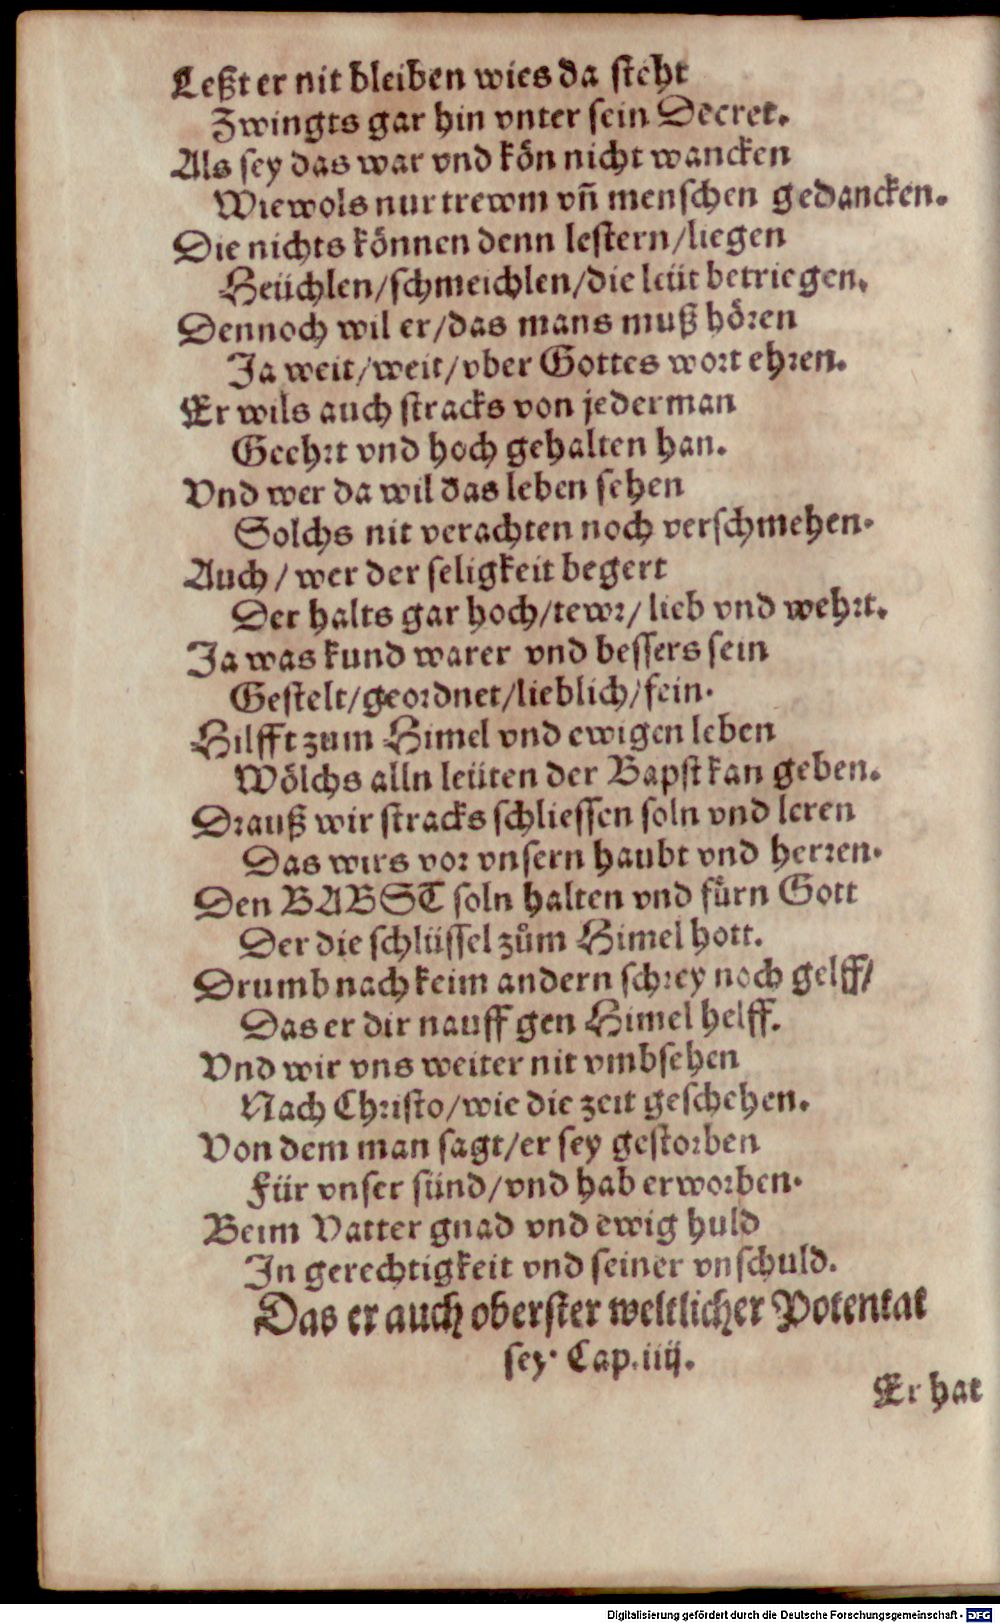 Leßt er nit bleiben wies da steht
Zwingts gar hin vnter sein Decret.
Als sey das war vnd kön nicht wancken
Wiewols nur trewm vñ menschen gedancken.
Die nichts können denn lestern/liegen
Heüchlen/schmeichlen/die leüt betriegen.
Dennoch wil er/das mans muß hören
Ja weit/weit/vber Gottes wort ehren.
Er wils auch stracks von jederman
Geehrt vnd hoch gehalten han.
Vnd wer da wil das leben sehen
Solchs nit verachten noch verschmehen.
Auch/wer der seligkeit begert
Der halts gar hoch/tewr/lieb vnd wehrt.
Ja was kund warer vnd bessers sein
Gestelt/geordnet/lieblich/fein.
Hilfft zum Himel vnd ewigen leben
Wölchs alln leüten der Bapst kan geben.
Drauß wir stracks schliessen soln vnd leren
Das wirs vor vnsern haubt vnd herren.
Den BABST soln halten vnd fürn Gott
Der die schlüssel zům Himel hott.
Drumb nach keim andern schrey noch gelff/
Das er dir nauff gen Himel helff.
Vnd wir vns weiter nit vmbsehen
Nach Christo/wie die zeit geschehen.
Von dem man sagt/er sey gestorben
Für vnser sünd/vnd hab erworben.
Beim Vatter gnad vnd ewig huld
In gerechtigkeit vnd seiner vnschuld.
Das er auch oberster weltlicher Potentat
sey. Cap. iiij.
Er hat
Digitalisierung gefördert durch die Deutsche Forschungsgemeinschaft - DFG